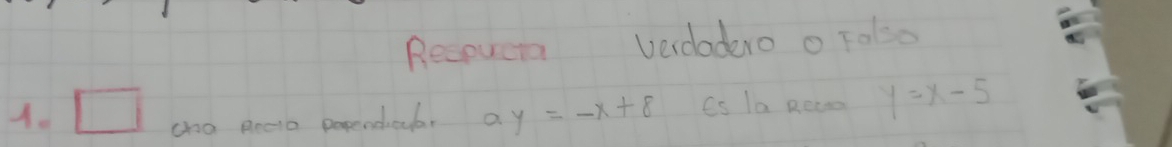 Respuesta Verdadero o Falso
1. una recta perpendicular a y = -x + 8 es la recta y = x - 5